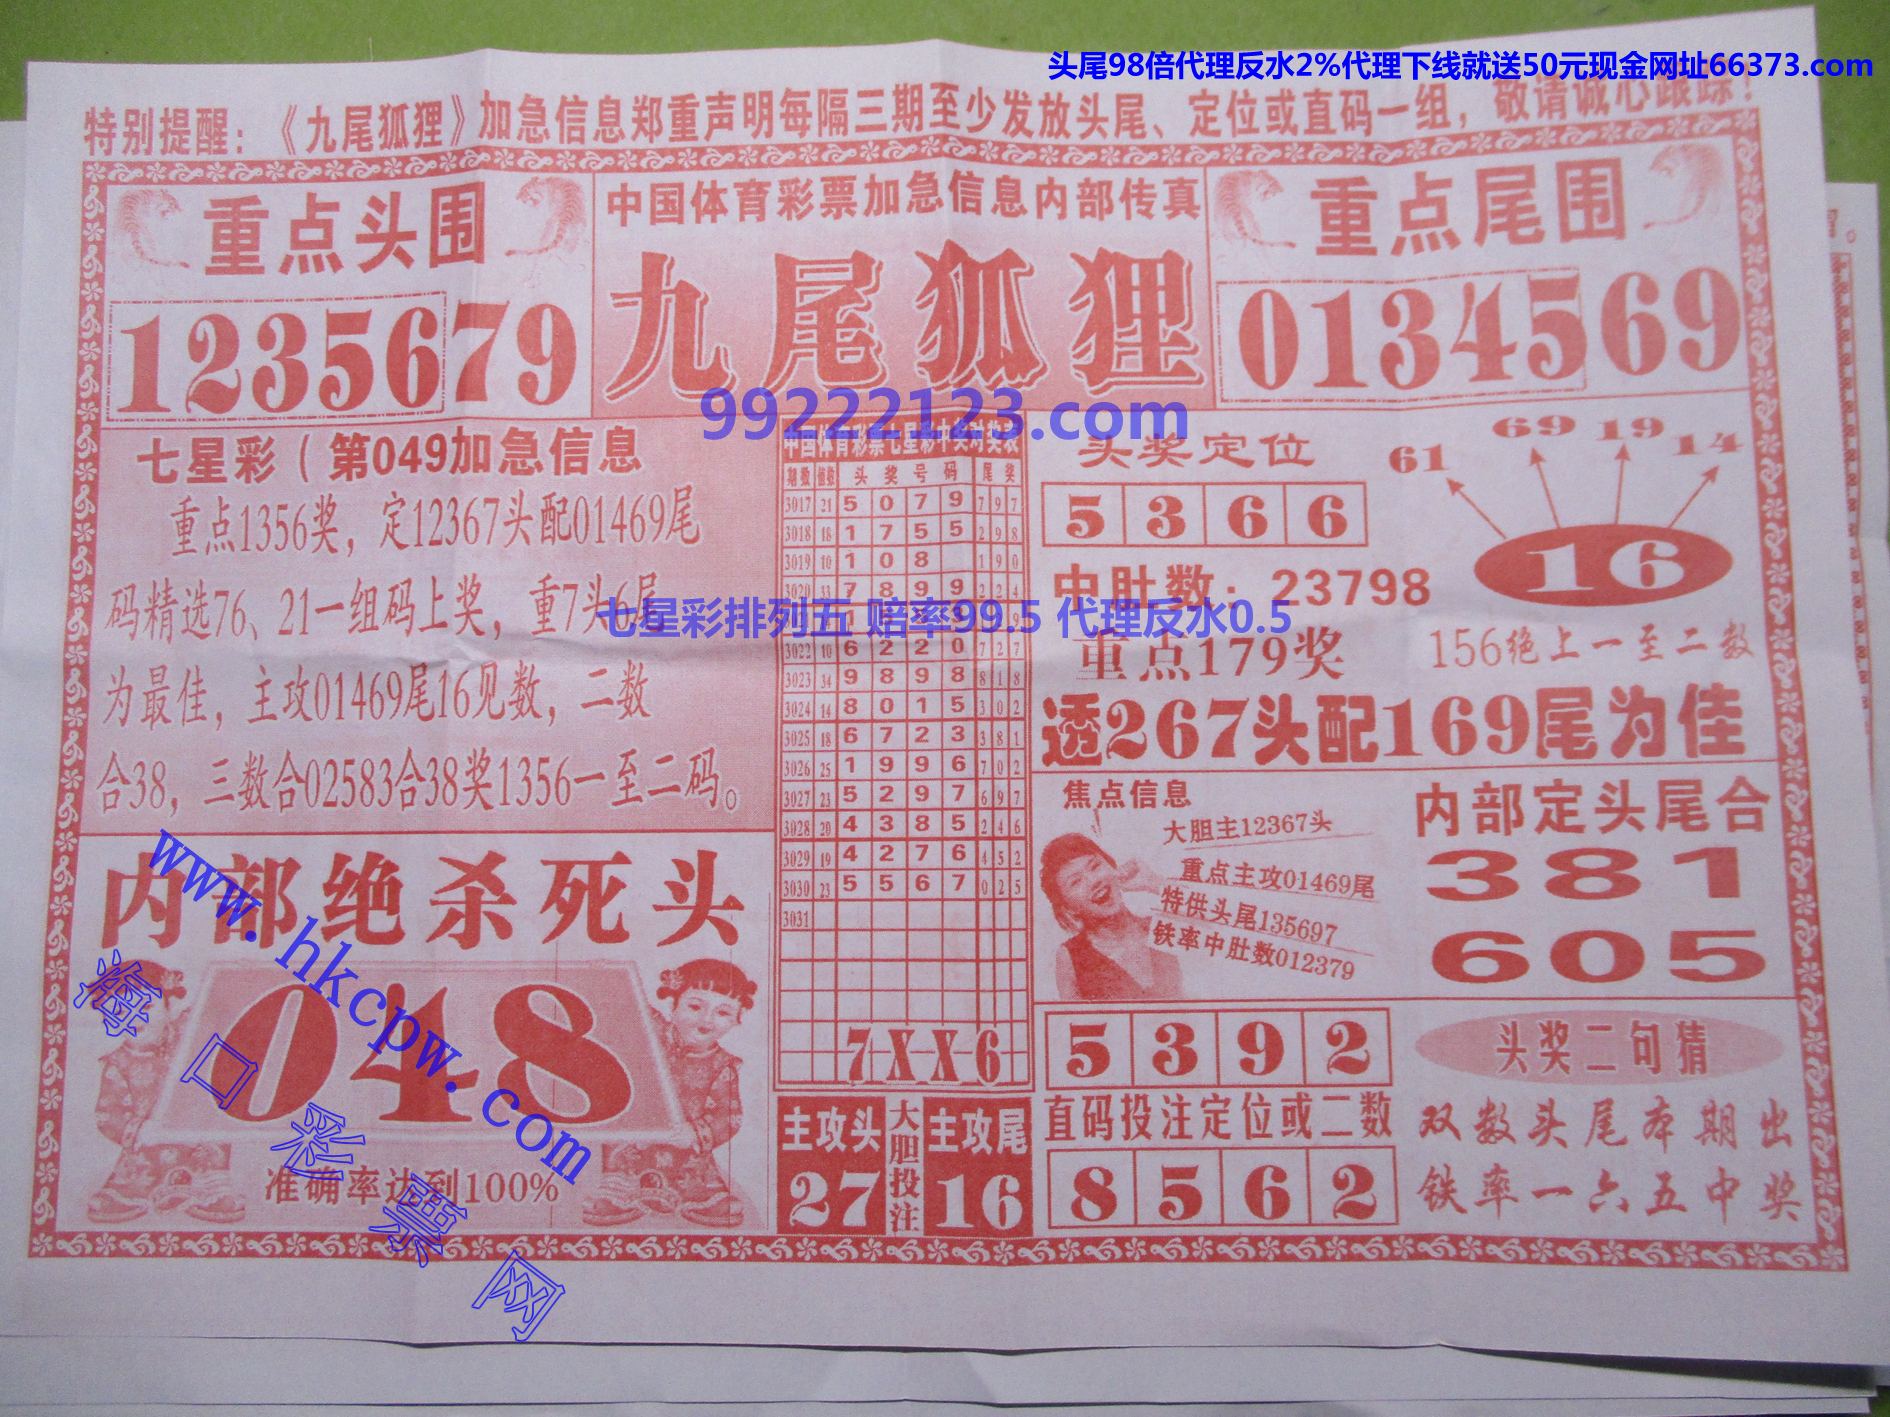 头尾98倍代理反水2%代理下线就送50元现金网址66373.com
特别提醒：《九尾狐狸》加急信息郑重声明每隔三期至少发放头尾、定位或直码一组，敬请诚心跟踪！
重点头围
1235679
中国体育彩票加急信息内部传真
九尾狐狸
重点尾围
0134569
99222123.com
七星彩（第049加急信息
重点1356奖，定12367头配01469尾
码精选76、21一组码上奖，重7头6尾
为最佳，主攻01469尾16见数，二数
合38，三数合02583合38奖1356一至二码。
七星彩排列五 赔率99.5 代理反水0.5
内部绝杀死头
048
准确率达到100%
www.hkcpw.com
海口彩票网
中国体育彩票七星彩中奖对奖表
期数 值数 头奖号码 尾奖
3017 21 5 0 7 9 7 9 7
3018 18 1 7 5 5 2 9 8
3019 10 1 0 8 1 9 0
3020 33 7 8 9 9 2 2 4
3022 10 6 2 2 0 7 2 7
3023 34 9 8 9 8 8 1 8
3024 14 8 0 1 5 3 0 2
3025 18 6 7 2 3 3 8 1
3026 25 1 9 9 6 7 0 2
3027 23 5 2 9 7 6 9 7
3028 20 4 3 8 5 2 4 6
3029 19 4 2 7 6 4 5 2
3030 23 5 5 6 7 0 2 5
3031
7XX6
主攻头
27
大胆投注
主攻尾
16
头奖定位
5 3 6 6
61 69 19 14
16
中肚数：23798
重点179奖
156绝上一至二数
透267头配169尾为佳
焦点信息
大胆主12367头
重点主攻01469尾
特供头尾135697
铁率中肚数012379
内部定头尾合
381
605
5 3 9 2
直码投注定位或二数
8 5 6 2
头奖二句猜
双数头尾本期出
铁率一六五中奖